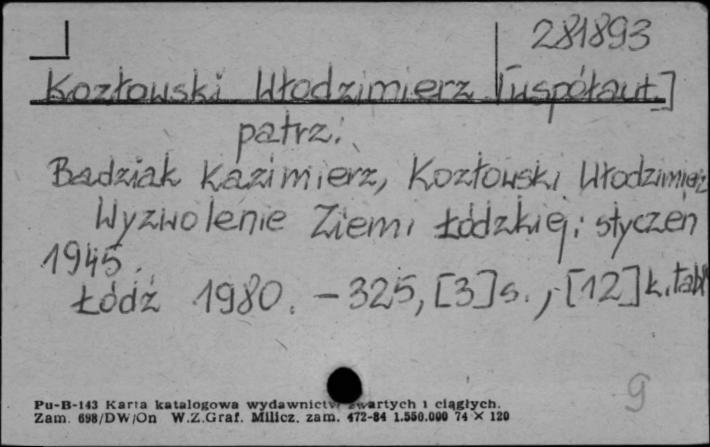 281893
Kozłowski Włodzimierz [współaut.]
patrz:
Badziak Kazimierz, Kozłowski Włodzimierz
Wyzwolenie Ziemi Łódzkiej: styczeń
1945.
Łódź 1980. - 325, [3] s., [12] k. tabl
9
Pu-B-143 Karta katalogowa wydawnictw zwartych i ciągłych.
Zam. 698/DW/On W.Z.Graf. Milicz. zam. 472-84 1.550.000 74 × 120